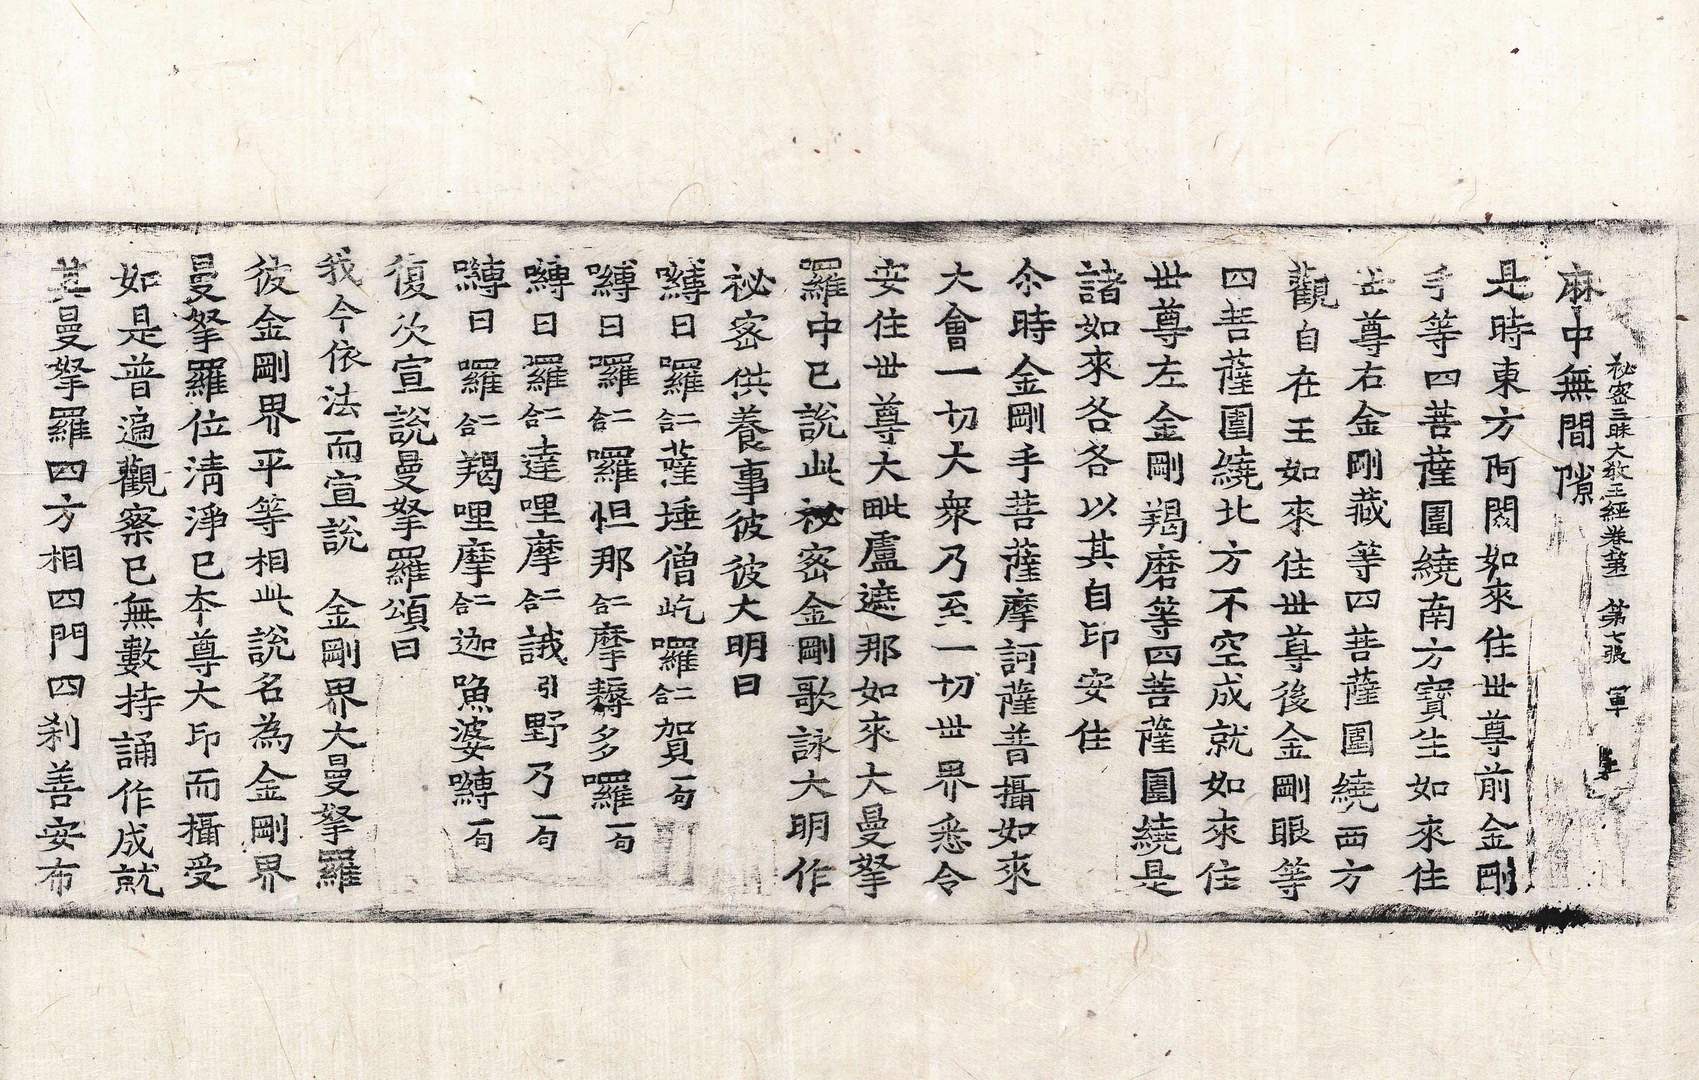 秘密三昧大教王經卷第一 第七張 軍
麻中無間隙
是時東方阿閦如來住世尊前金剛
手等四菩薩圍繞南方寶生如來住
世尊右金剛藏等四菩薩圍繞西方
觀自在王如來住世尊後金剛眼等
四菩薩圍繞北方不空成就如來住
世尊左金剛羯磨等四菩薩圍繞是
諸如來各各以其自印安住
尒時金剛手菩薩摩訶薩普攝如來
大會一切大衆乃至一切世界悉令
安住世尊大毗盧遮那如來大曼拏
羅中已說此秘密金剛歌詠大明作
祕密供養事彼彼大明曰
嚩日囉二合薩埵僧屹囉二合賀一句
嚩日囉二合囉怛那二合摩耨多囉一句
嚩日囉二合達哩摩二合誐引野乃一句
嚩日囉二合羯哩摩二合迦噜婆嚩一句
復次宣說曼拏羅頌曰
我今依法而宣說 金剛界大曼拏羅
彼金剛界平等相此說名為金剛界
曼拏羅位清淨已夲尊大印而攝受
如是普遍觀察已無數持誦作成就
其曼拏羅四方相四門四刹善安布